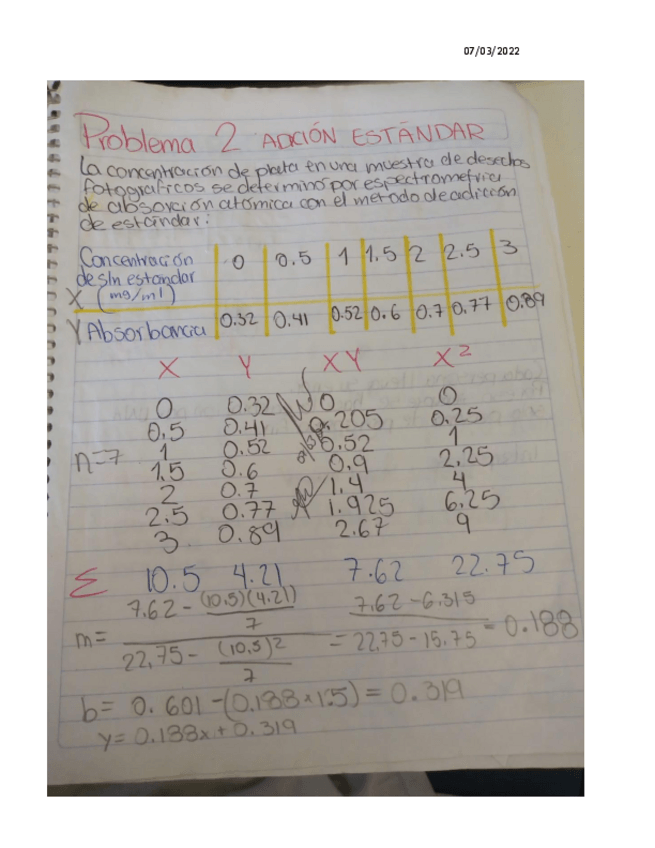 07/03/2022
Problema 2 ADICIÓN ESTÁNDAR
La concentración de plata en una muestra de desechos
fotograficos se determinó por espectrometria
de absorción atómica con el metodo de adicción
de estándar:
Concentración de sln estandar X (mg/ml) 0 0.5 1 1.5 2 2.5 3
Y Absorbancia 0.32 0.41 0.52 0.6 0.7 0.77 0.89
X Y XY X²
0 0.32 0 0
0.5 0.41 0.205 0.25
1 0.52 0.52 1
n=7 1.5 0.6 0.9 2.25
2 0.7 1.4 4
2.5 0.77 1.925 6.25
3 0.89 2.67 9
Σ 10.5 4.21 7.62 22.75
7.62 - (10.5)(4.21) / 7 7.62 - 6.315
m= = = 0.188
22.75 - (10.5)2 / 7 22.75 - 15.75
b= 0.601 -(0.188 x 1.5) = 0.319
y= 0.188x + 0.319